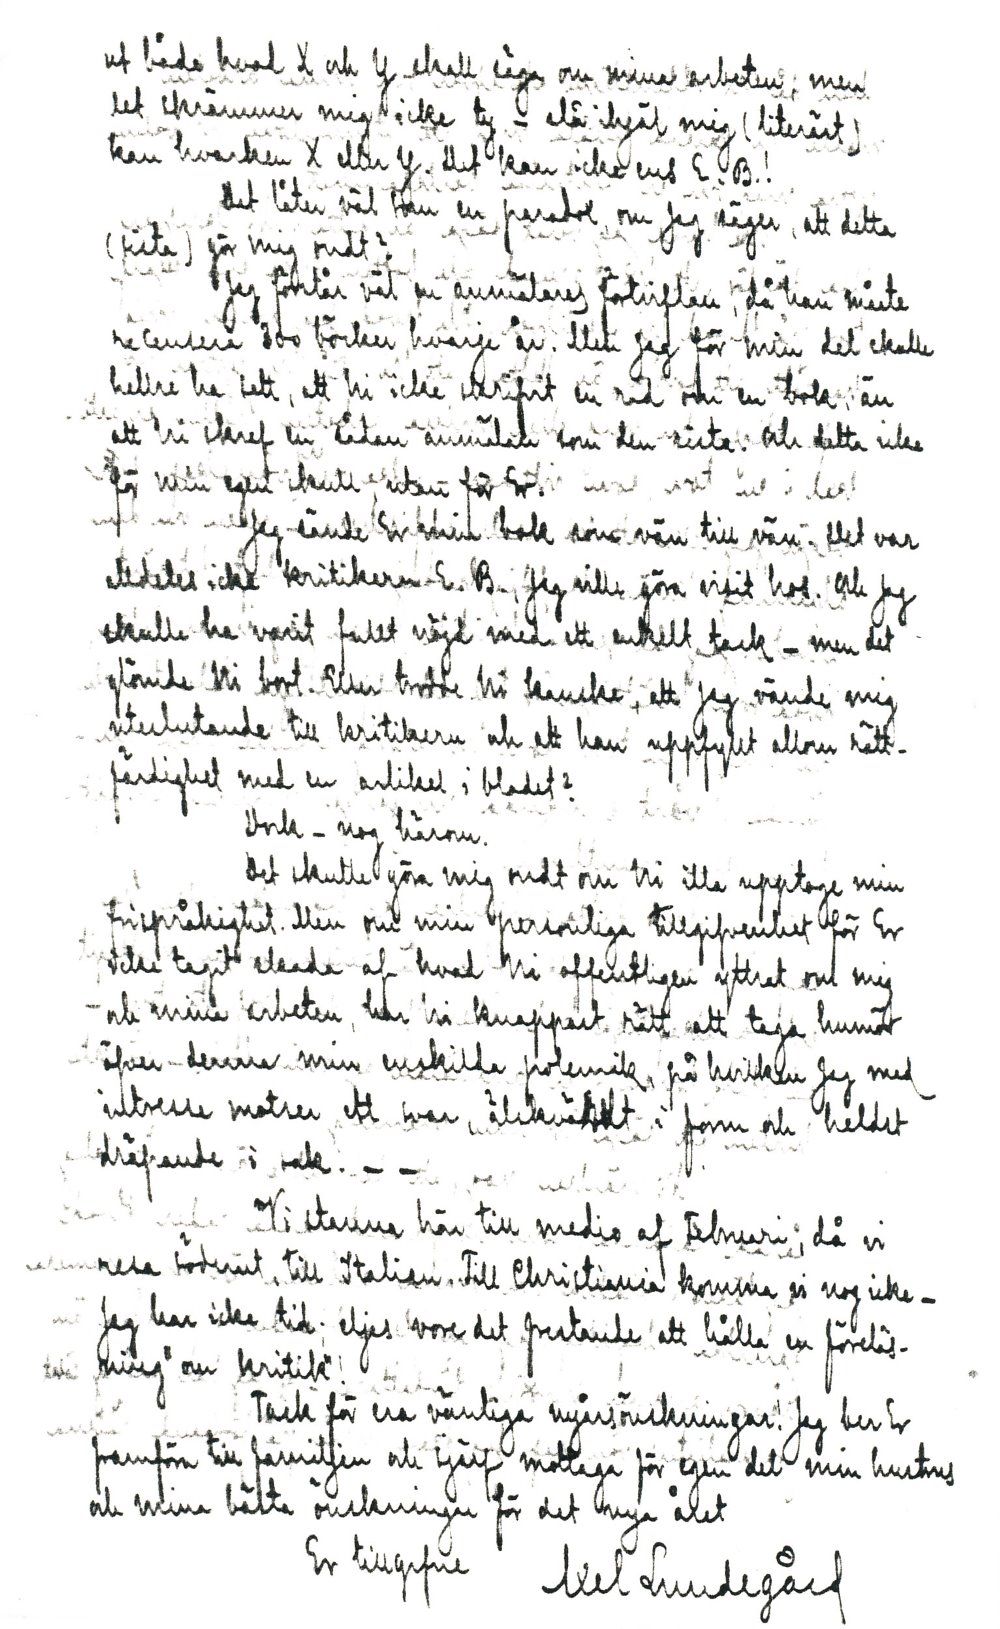 ut både hvad X och Y skall säga om mina arbeten, men
det skrämmer mig icke ty – slå ihjäl mig (literärt)
kan hvarken X eller Y. Det kan icke ens E. B.!
Det låter väl som en paradox, om jag säger, att detta
(sista) gör mig ondt?
Jag förstår väl en anmälares förtviflan, då han måste
recensera 300 böcker hvarje år. Men jag för min del skulle
hellre ha sett, att Ni icke skrifvit en rad om en bok, än
att Ni skref en sådan anmälan som den sista. Och detta icke
för min egen skull, utan för Er.
Jag sände Er min bok som vän till vän. Det var
alldeles icke kritikern E. B., jag ville göra visit hos. Och jag
skulle ha varit fullt nöjd med ett enkelt tack – men det
glömde Ni bort. Eller trodde Ni kanske, att jag vände mig
uteslutande till kritikern och att han uppfylt allom rätt-
färdighet med en artikel i bladet?
Dock – nog härom.
Det skulle göra mig ondt om Ni illa upptoge min
frispråkighet. Men om min personliga tillgifvenhet för Er
icke tagit skada af hvad Ni offentligen yttrat om mig
och mina arbeten, har Ni knappast rätt att taga humör
öfver denna min enskilda polemik, på hvilken jag med
intresse motser ett svar, älskvärdt i form och helst
dräpande i sak. – –
Vi stanna här till medio af Februari, då vi
resa söderut, till Italien. Till Christiania komma vi nog icke –
jag har icke tid; eljes vore det frestande att hålla en föreläs-
ning "om kritik"!
Tack för era vänliga nyårsönskningar! Jag ber Er
framföra till familjen och sjelf mottaga för egen del min hustrus
och mina bästa önskningar för det nya året
Er tillgifne Axel Lundegård